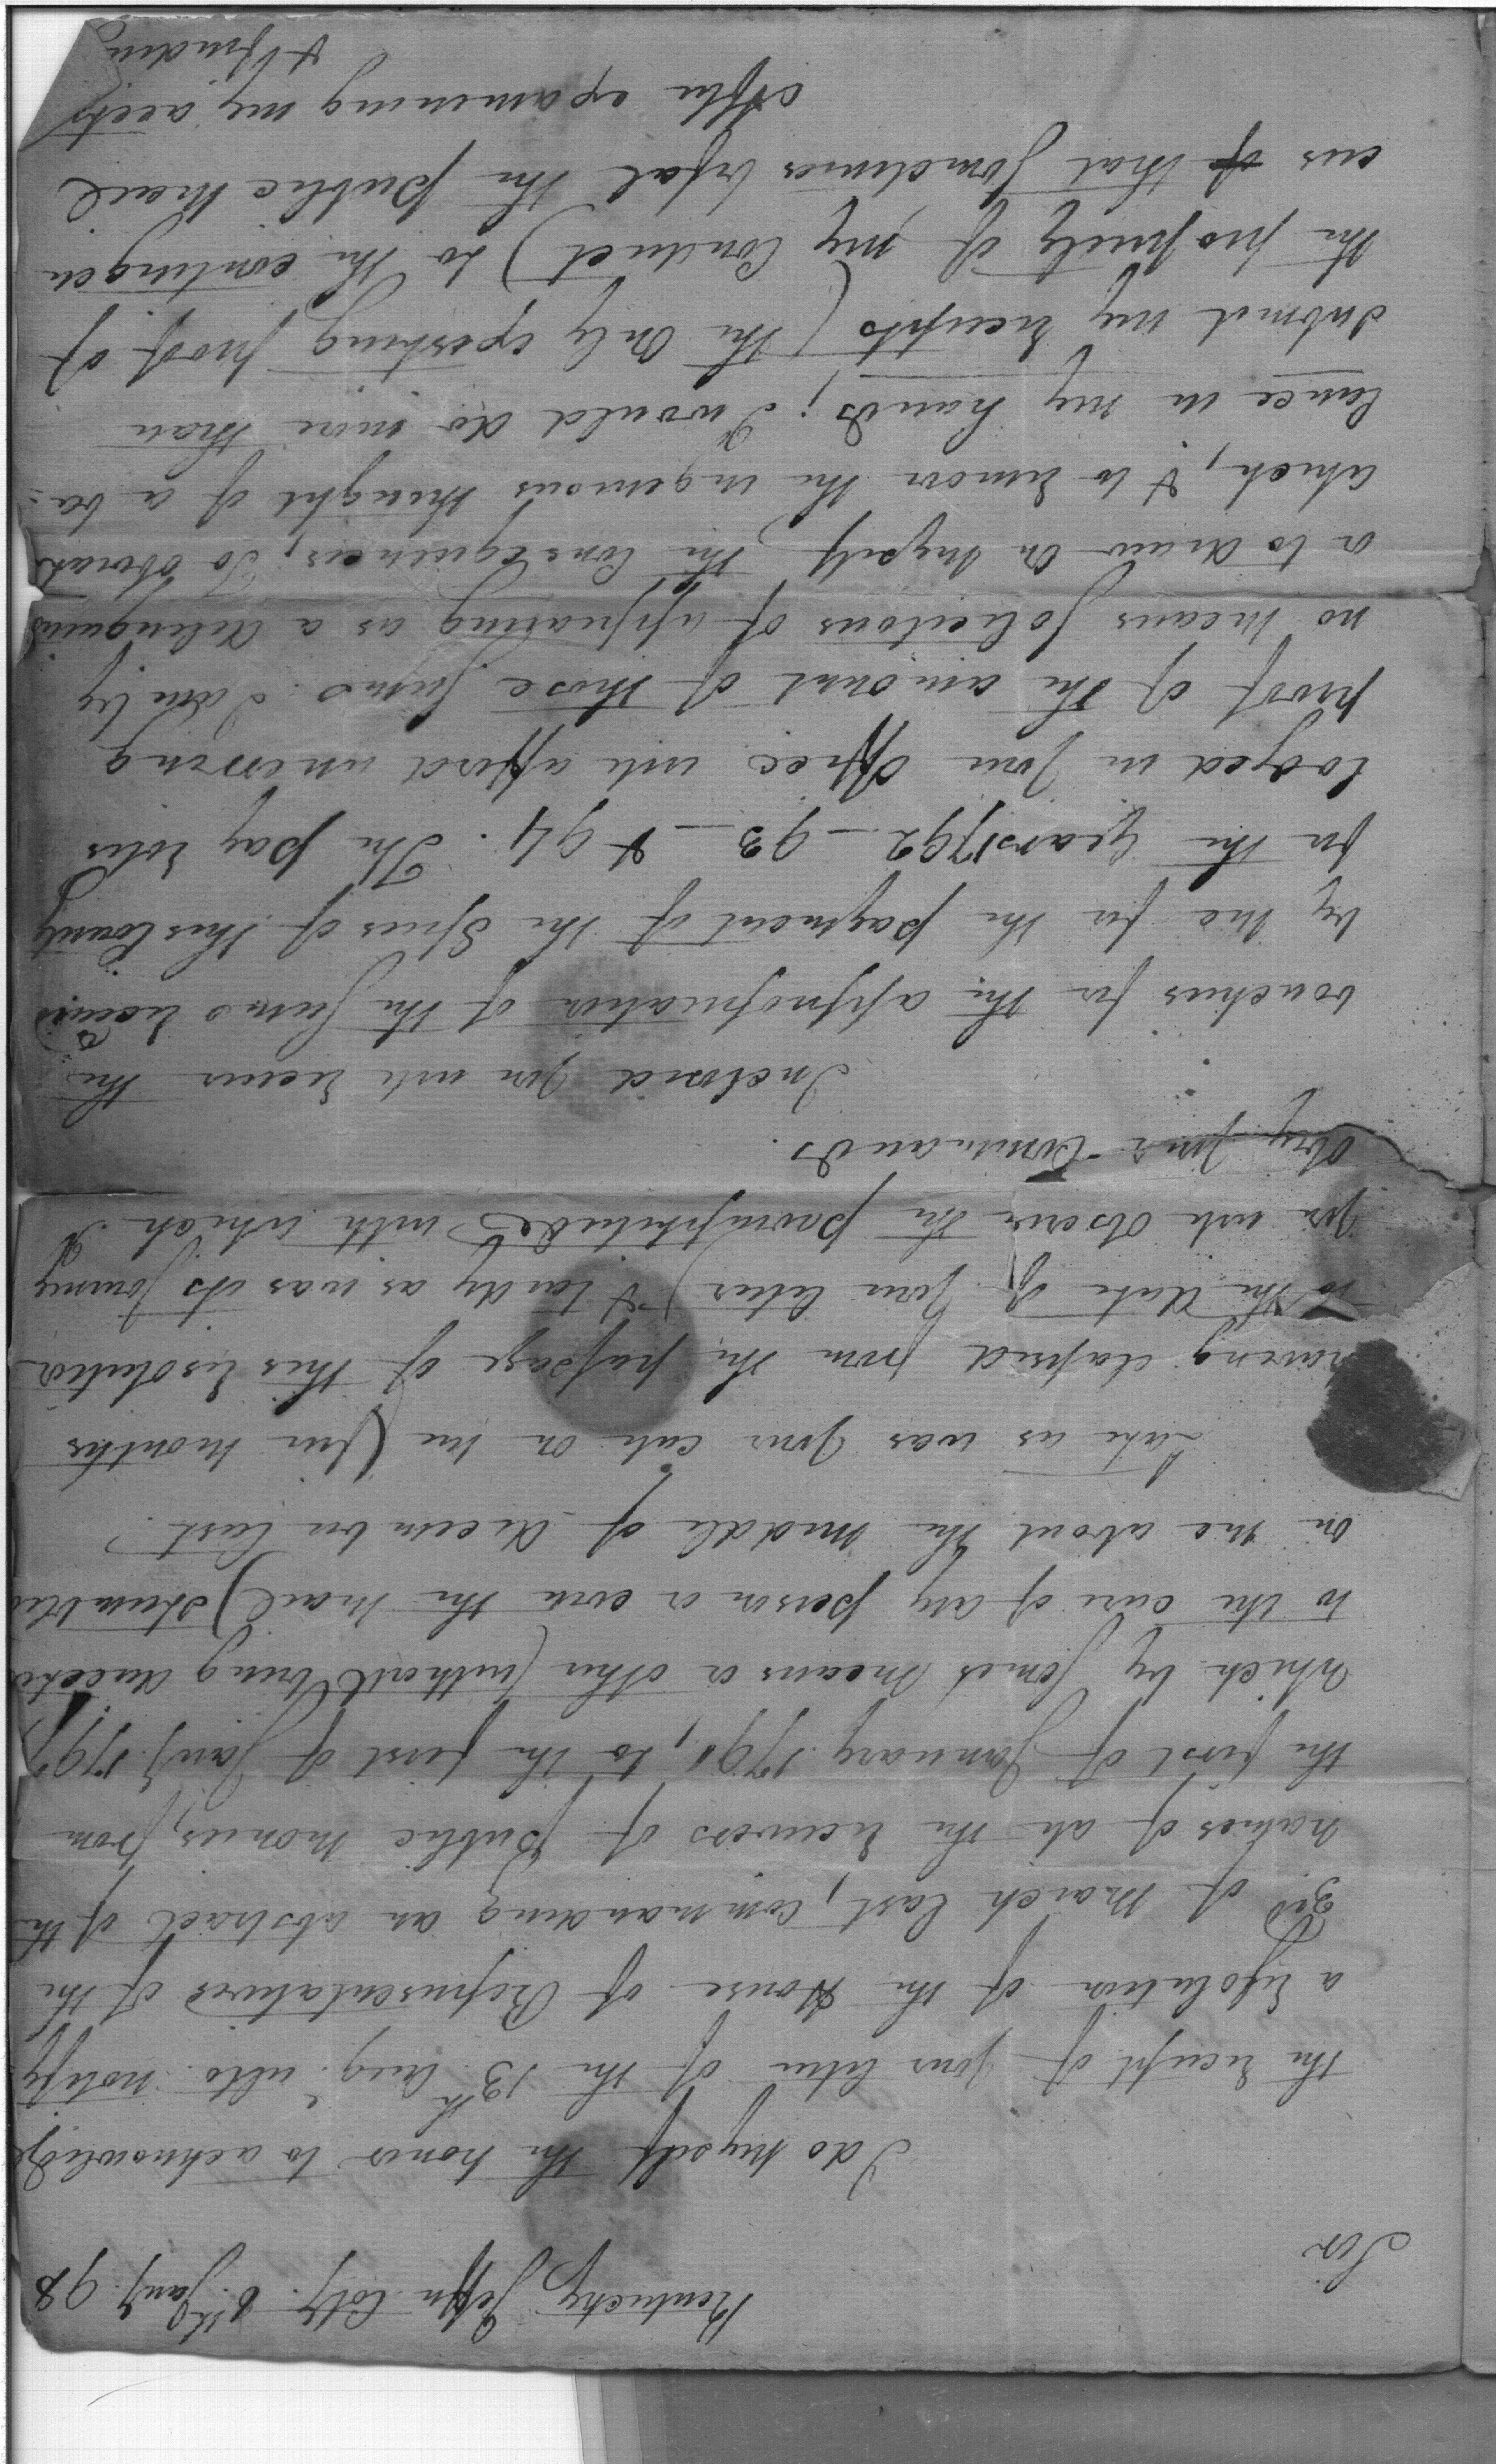 Kentucky Jeffn Coty. 6th Jany. 98
Sir
I do myself the honor to acknowledge
the receipt of your letter of the 13th Aug. ulto. notify
a resolution of the House of Representatives of the
3rd of March last, commanding an abstract of th
names of all the receivers of public monies, from
the first of January 1791, to the first of Jany. 1797
which by some means or other (without being directed
to the care of any person or even the mail) stumbled
on me about the middle of december last.
Late as was your call on me (five months
having elapsed from the passage of this resolution
to the date of your letter) & tardy as was its journey
you will observe the promptitude with which I
obey your Commands.
Inclosed you will receive the
vouchers for the appropriation of the sums receivd
by me for the payment of the Spies of this County
for the years 1792 - 93 - & 94. The pay roles
lodged in your office will afford unerring
proof of the amount of those sums. I am by
no means solicitous of appearing as a delinquent
or to draw on myself the Consequences, To obviate
which, & to remove the ingenious thought of a ba=
lance in my hands; I would do more than
submit my receipts (the only existing proof of
the propriety of my Conduct) to the contingen
cies of that sometimes befal the public Mail
After examining my accts
&